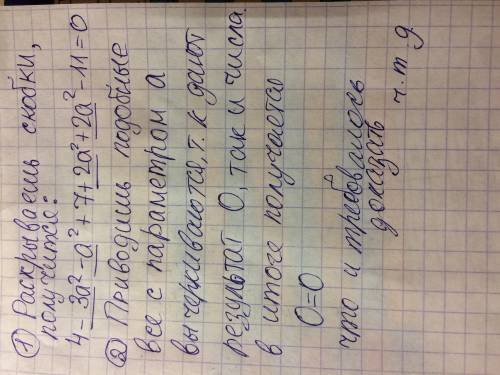 ① Раскрываешь скобки,
получится:
4-3a²-a²+7+2a²+2a²-11=0
② Приводишь подобные
все с параметром а
вычеркиваются, т.к дают
результат 0, так и числа.
в итоге получается
0=0
что и требовалось
доказать
ч.т.д